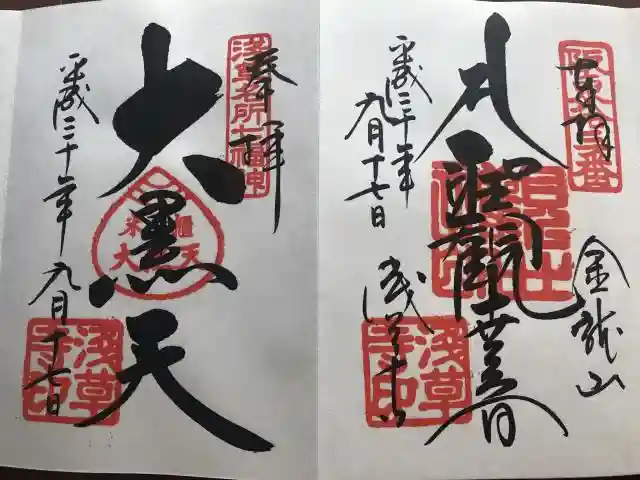 奉拝
坂東十三番
金龍山
聖観世音
平成三十年
九月十七日
浅草寺
淺草寺印
奉拝
淺草名所七福神
大黒天
平成三十年九月十七日
淺草寺印